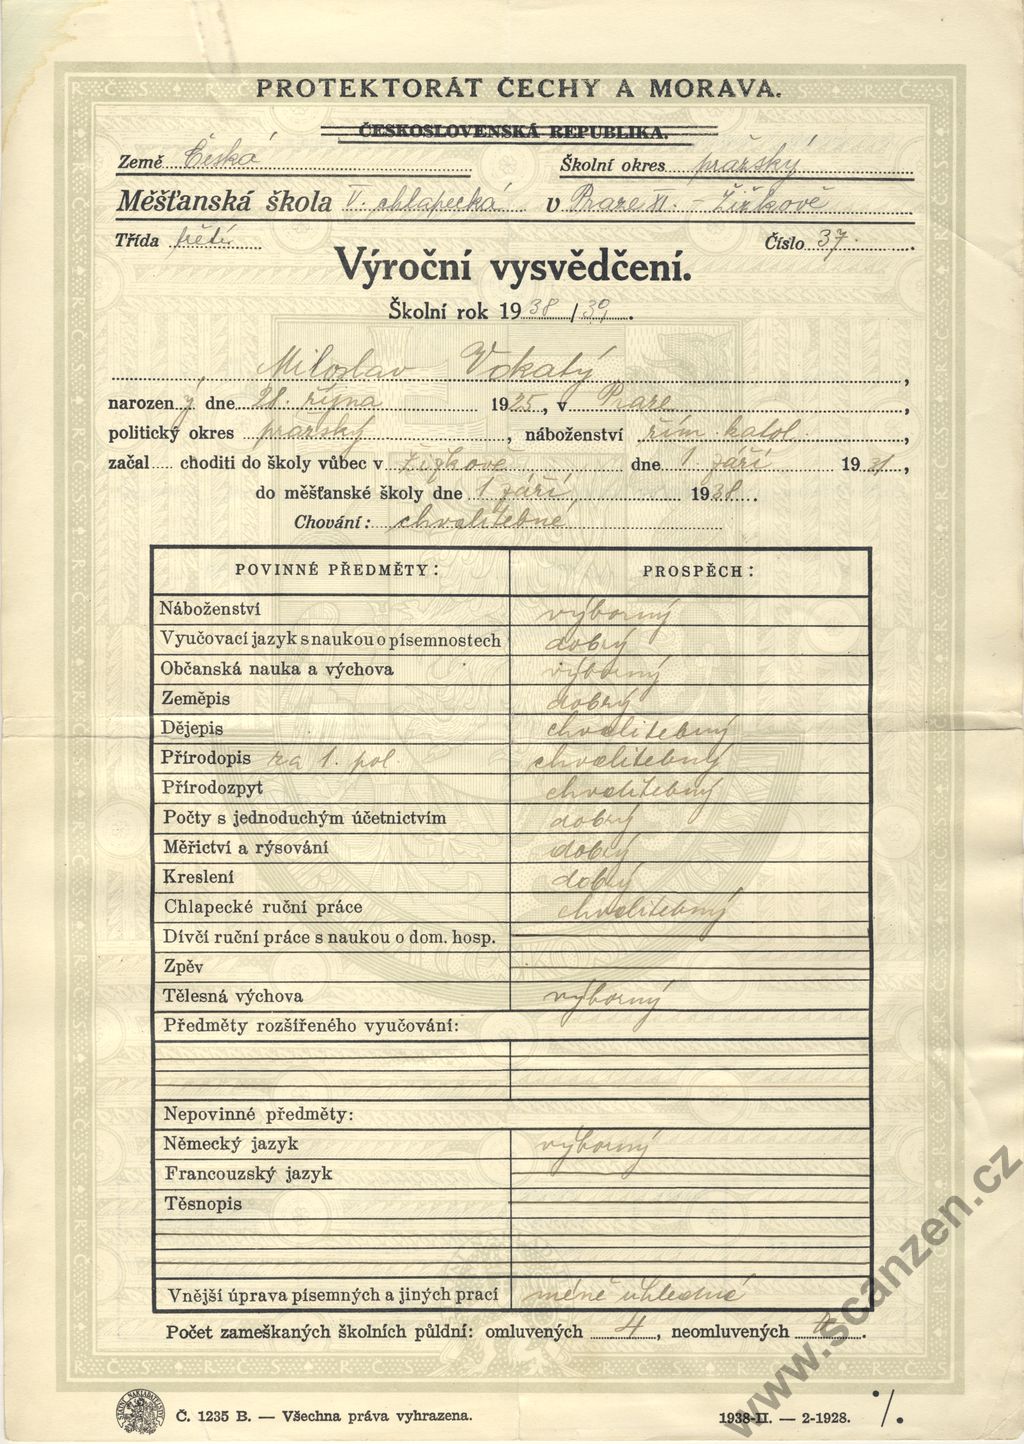 PROTEKTORÁT ČECHY A MORAVA.
ČESKOSLOVENSKÁ REPUBLIKA.
Země Česká Školní okres pražský
Měšťanská škola V. chlapecká v Praze XI. – Žižkově
Třída třetí Číslo 37.
Výroční vysvědčení.
Školní rok 1938/39.
Miloslav Vokatý,
narozený dne 28. října 1925, v Praze,
politický okres pražský, náboženství řím. katol.,
začal choditi do školy vůbec v Žižkově dne 1. září 1931,
do měšťanské školy dne 1. září 1938.
Chování: chvalitebné
POVINNÉ PŘEDMĚTY: PROSPĚCH:
Náboženství výborný
Vyučovací jazyk s naukou o písemnostech dobrý
Občanská nauka a výchova výborný
Zeměpis dobrý
Dějepis chvalitebný
Přírodopis za 1. pol. chvalitebný
Přírodozpyt chvalitebný
Počty s jednoduchým účetnictvím dobrý
Měřictví a rýsování dobrý
Kreslení dobrý
Chlapecké ruční práce chvalitebný
Dívčí ruční práce s naukou o dom. hosp.
Zpěv
Tělesná výchova výborný
Předměty rozšířeného vyučování:
Nepovinné předměty:
Německý jazyk výborný
Francouzský jazyk
Těsnopis
Vnější úprava písemných a jiných prací méně úhledná
Počet zameškaných školních půldní: omluvených 4, neomluvených .
Č. 1235 B. — Všechna práva vyhrazena. 1938-II. — 2-1928.
www.scanzen.cz